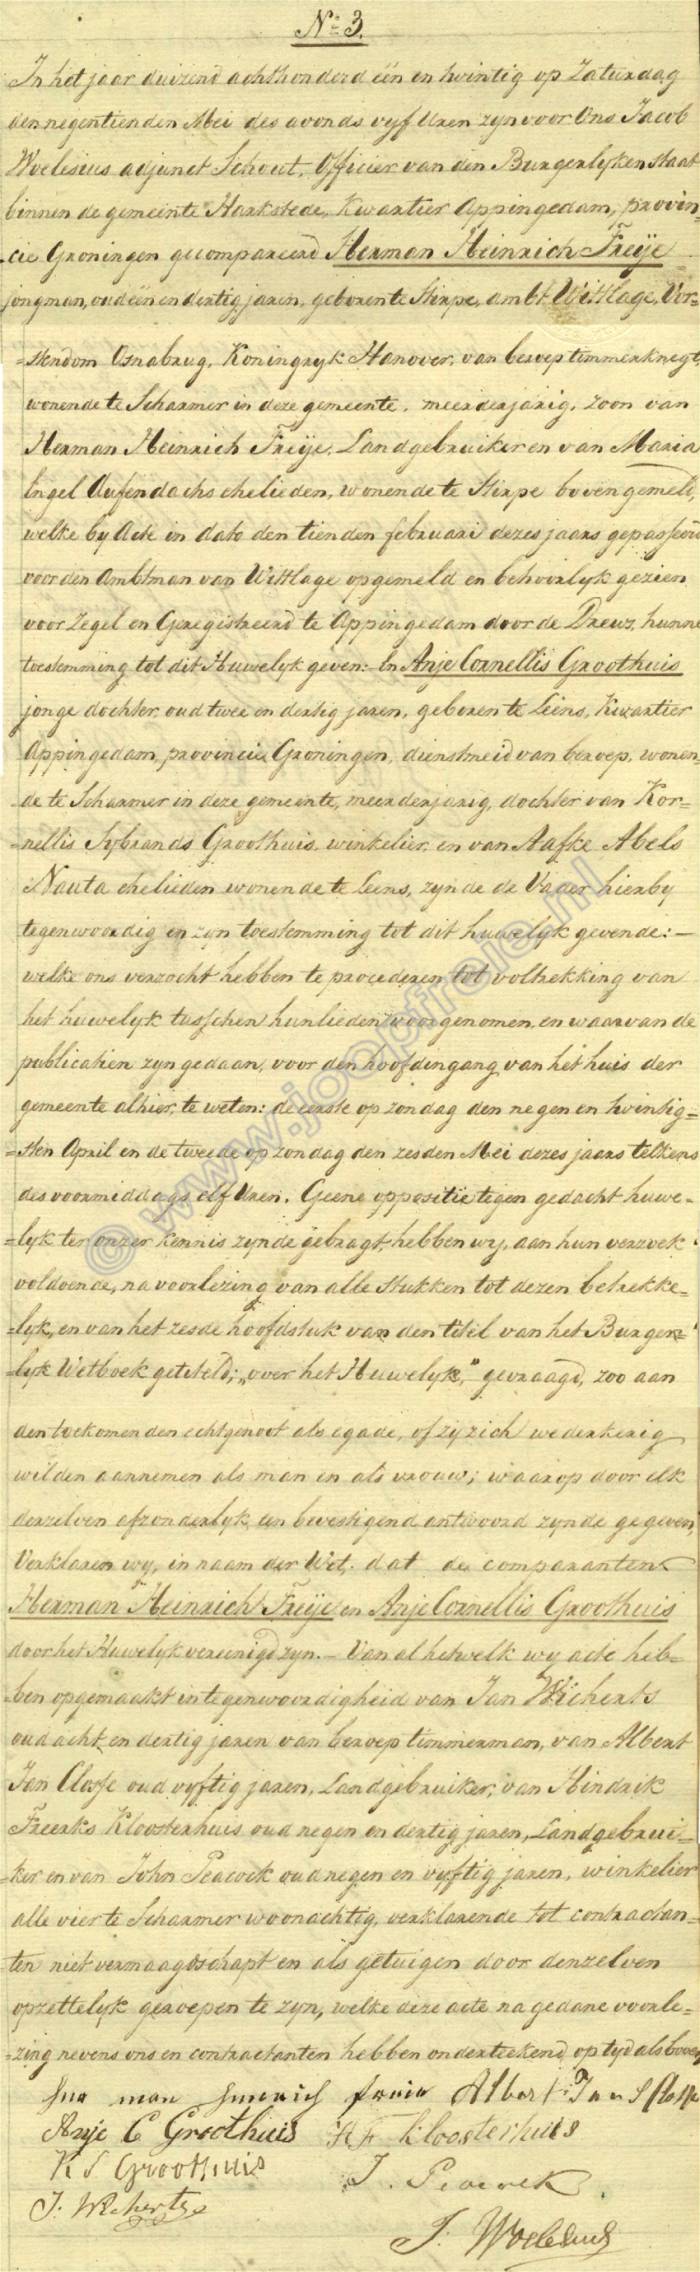 No 3.
In het jaar duizend achthonderd één en twintig op Zaturdag
den negentienden Mei des avonds vyf Uren zyn voor Ons Jacob
Woelesius adjunct Schout, Officier van den Burgerlyken Staat
binnen de gemeente Harkstede, Kwartier Appingedam, provin-
cie Groningen gecompareerd Herman Heinrich Freije
jongman, oud één en dertig jaren, geboren te Stirpe, ambt Wittlage, Vor-
=stendom Osnabrug, Koningryk Hanover, van beroep timmerknegt,
wonende te Scharmer in deze gemeente, meerderjarig, zoon van
Herman Heinrich Freije, Landgebruiker en van Maria
Engel Aufendachs ehelieden, wonende te Stirpe bovengemeld,
welke by Acte in dato den tienden februari dezes jaars gepasseerd
voor den Ambtman van Wittlage opgemeld en behoorlyk gezien
voor Zegel en Geregistreerd te Appingedam door de Drews, hunne
toestemming tot dit Huwelyk geven:- En Anje Cornellis Groothuis
jonge dochter oud twee en dertig jaren, geboren te Leens, Kwartier
Appingedam, provincie Groningen, dienstmeid van beroep, wonen-
de te Scharmer in deze gemeente, meerderjarig, dochter van Kor-
=nellis Sybrands Groothuis, winkelier, en van Aafke Abels
Nauta ehelieden wonende te Leens, zynde de Vader hierby
tegenwoordig en zyn toestemming tot dit huwelyk gevende:-
welke ons verzocht hebben te procederen tot voltrekking van
het huwelyk tusschen hunlieden voorgenomen, en waarvan de
publicatien zyn gedaan, voor den hoofdingang van het huis der
gemeente alhier, te weten: de eerste op zondag den negen en twintig-
=sten April en de tweede op zondag den zesden Mei dezes jaars telkens
des voormiddags elf Uren. Geene oppositie tegen gedacht huwe-
=lyk ter onzer kennis zynde gebragt, hebben wy, aan hun verzoek
voldoende, na voorlezing van alle Stukken tot dezen betrekke-
=lyk, en van het zesde hoofdstuk van den titel van het Burger-
=lyk Wetboek getiteld; „over het Huwelyk," gevraagd, zoo aan
den toekomenden echtgenoot als egade, of zy zich wederkerig
wilden aannemen als man en als vrouw; waarop door elk
derzelven afzonderlyk een bevestigend antwoord zynde gegeven,
Verklaren wy, in naam der Wet, dat de comparanten
Herman Heinrich Freije en Anje Cornellis Groothuis
door het Huwelyk vereenigd zyn.- Van al hetwelk wy acte heb-
=ben opgemaakt in tegenwoordigheid van Jan Wicherts
oud acht en dertig jaren van beroep timmerman, van Albert
Jan Closse oud vyftig jaren, Landgebruiker, van Hindrik
Freerks Kloosterhuis oud negen en dertig jaren, Landgebrui-
-ker en van John Peacock oud negen en vyftig jaren, winkelier
alle vier te Scharmer woonachtig, verklarende tot contractan-
ten niet vermaagdschapt en als getuigen door denzelven
opzettelyk geroepen te zyn, welke deze acte na gedane voorle-
=zing nevens ons en contractanten hebben onderteekend, op tyd als boven
her man heinrich freie Albert Jans Closse
Anje C Groothuis H F Kloosterhuis
K S Groothuis J. Peacock
J: Wicherts
J: Woelesius
© www.joopfreie.nl